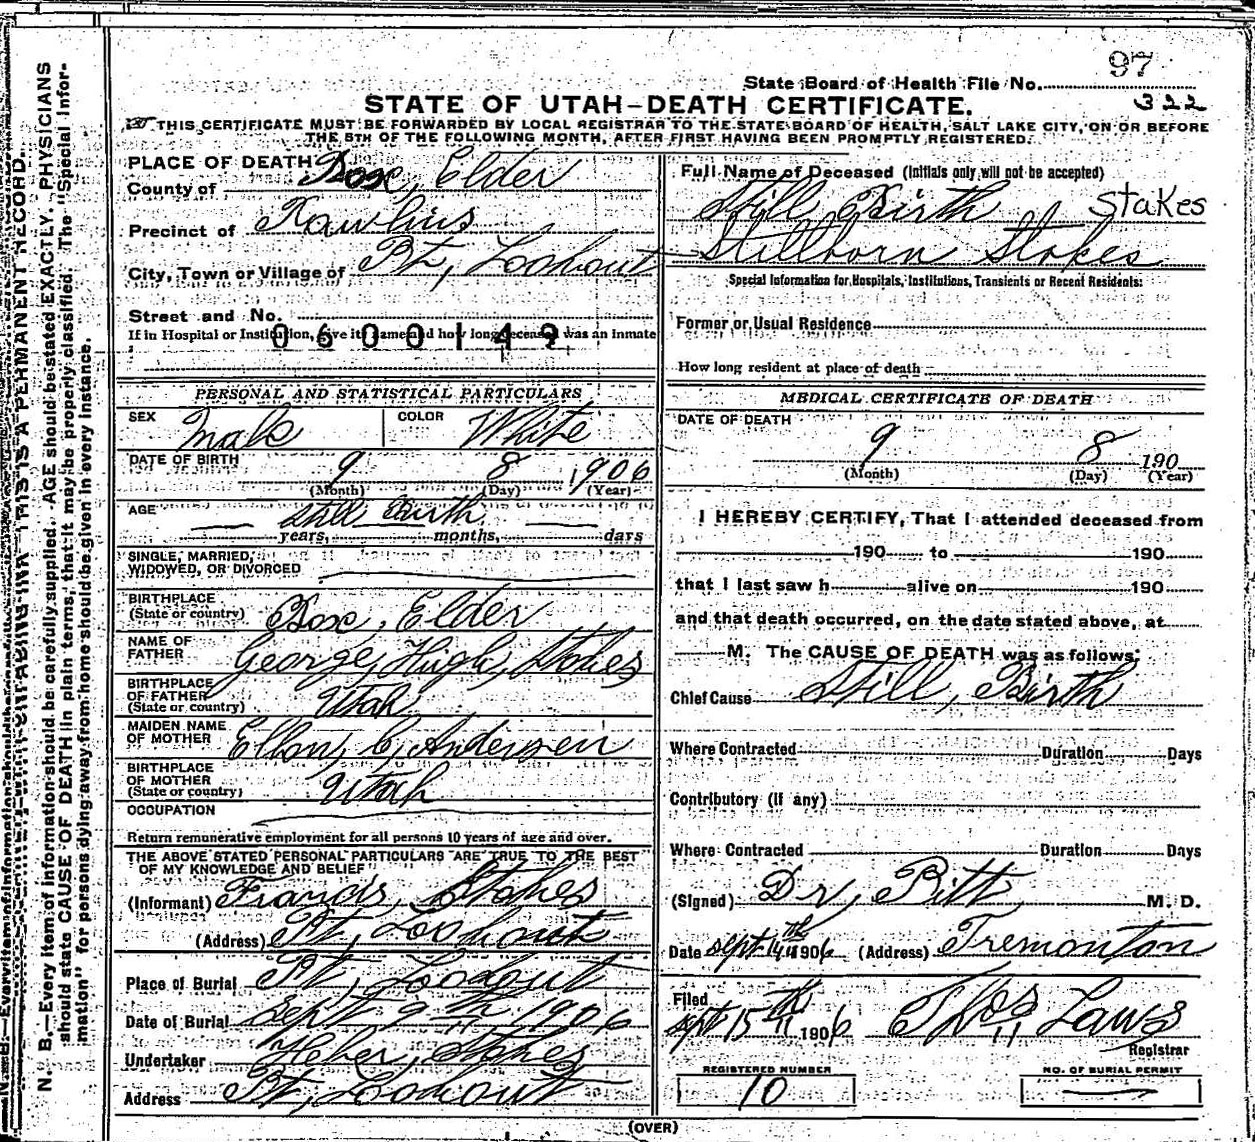 97
State Board of Health File No.
322
STATE OF UTAH-DEATH CERTIFICATE.
THIS CERTIFICATE MUST BE FORWARDED BY LOCAL REGISTRAR TO THE STATE BOARD OF HEALTH, SALT LAKE CITY, ON OR BEFORE
THE 5TH OF THE FOLLOWING MONTH, AFTER FIRST HAVING BEEN PROMPTLY REGISTERED.
N. B.—Every item of information should be carefully supplied. AGE should be stated EXACTLY. PHYSICIANS
should state CAUSE OF DEATH in plain terms, that it may be properly classified. The "Special Infor-
mation" for persons dying away from home should be given in every instance.
THIS IS A PERMANENT RECORD
PLACE OF DEATH
County of Box, Elder
Precinct of Rawlins
City, Town or Village of Pt, Lookout
Street and No.
If in Hospital or Institution, give its name and how long deceased was an inmate
0600149
PERSONAL AND STATISTICAL PARTICULARS
SEX Male COLOR White
DATE OF BIRTH 9 8 1906
(Month) (Day) (Year)
AGE Still Birth
years, months, days
SINGLE, MARRIED,
WIDOWED, OR DIVORCED
BIRTHPLACE
(State or country) Box, Elder
NAME OF
FATHER George, Hugh, Stokes
BIRTHPLACE
OF FATHER
(State or country) Utah
MAIDEN NAME
OF MOTHER C, Andersen
BIRTHPLACE
OF MOTHER
(State or country) Utah
OCCUPATION
Return remunerative employment for all persons 10 years of age and over.
THE ABOVE STATED PERSONAL PARTICULARS ARE TRUE TO THE BEST
OF MY KNOWLEDGE AND BELIEF
(Informant) Francis, Stokes
(Address) Pt, Lookout
Place of Burial Pt, Lookout
Date of Burial Sept 9th 1906
Undertaker Heber, Stokes
Address Pt, Lookout
Full Name of Deceased (Initials only will not be accepted)
Still Birth Stakes
Stillborn Stokes
Special Information for Hospitals, Institutions, Transients or Recent Residents:
Former or Usual Residence
How long resident at place of death
MEDICAL CERTIFICATE OF DEATH
DATE OF DEATH
9 8 190
(Month) (Day) (Year)
I HEREBY CERTIFY, That I attended deceased from
190 to 190
that I last saw h alive on 190
and that death occurred, on the date stated above, at
M. The CAUSE OF DEATH was as follows:
Chief Cause Still, Birth
Where Contracted Duration Days
Contributory (if any)
Where Contracted Duration Days
(Signed) Dr, Pitt, M. D.
Date Sept 14th 1906 (Address) Tremonton
Filed
Sept 15th 1906 Thos Laws
Registrar
REGISTERED NUMBER
10
NO. OF BURIAL PERMIT
(OVER)